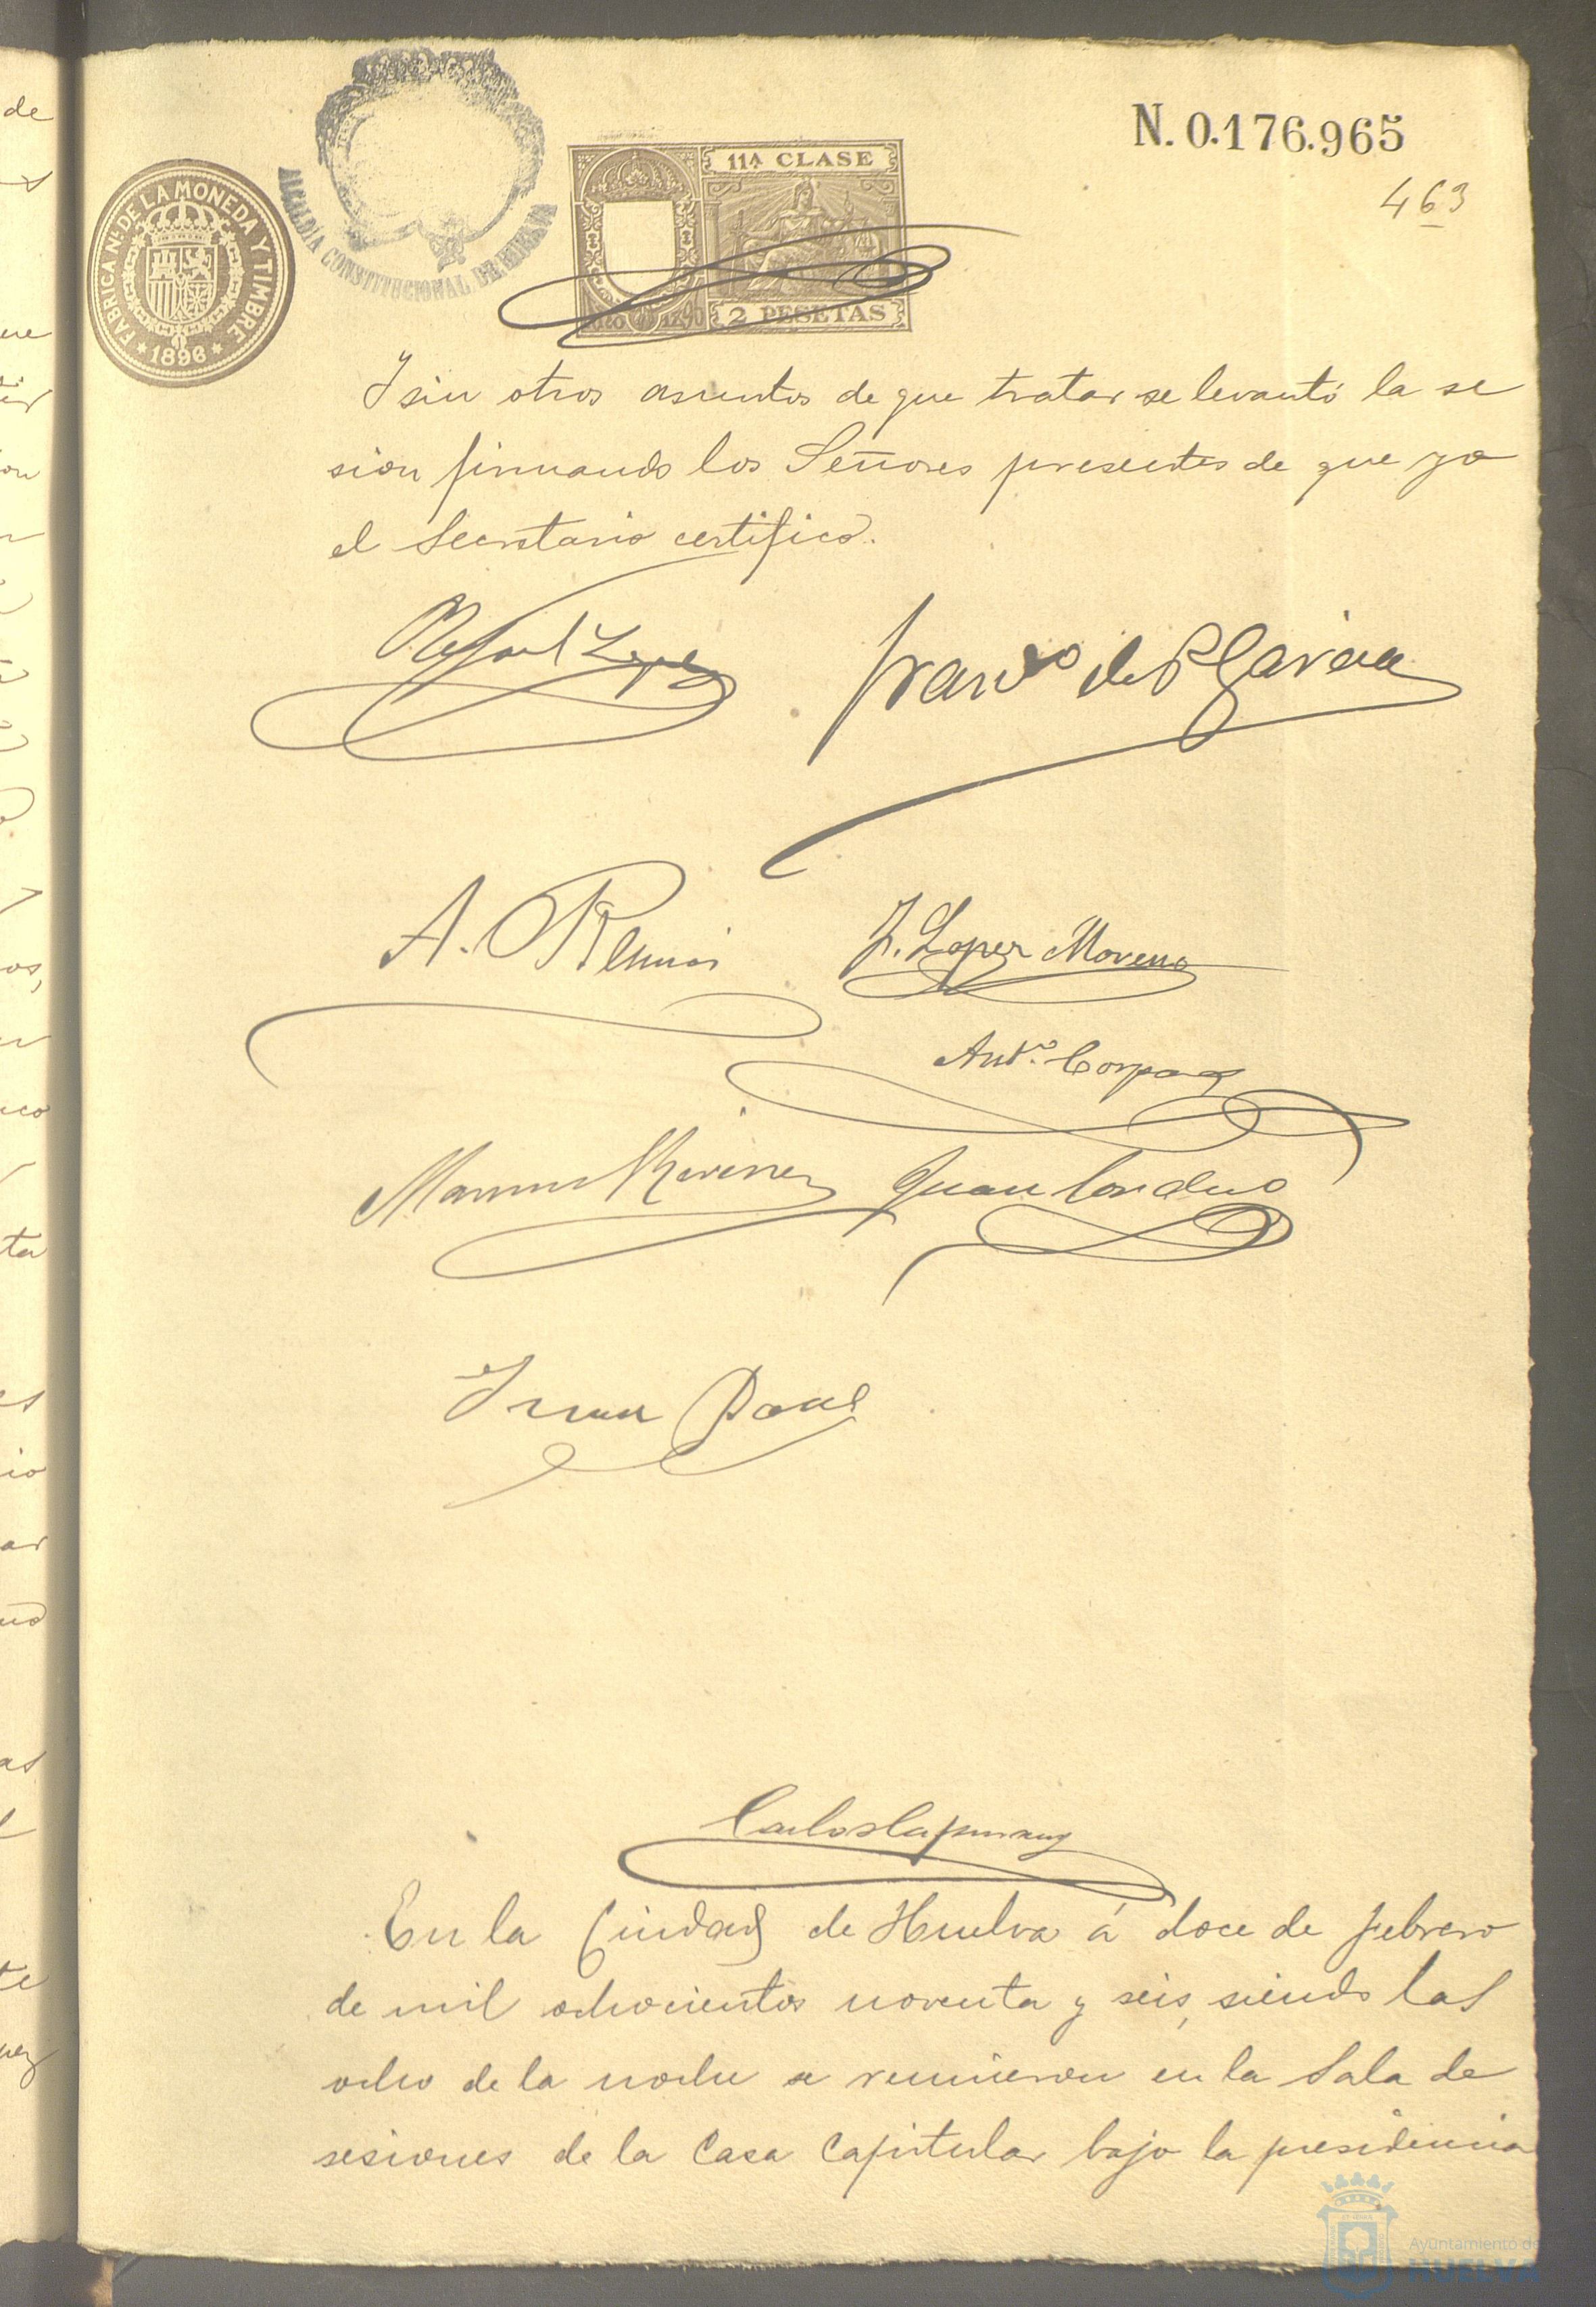 N. 0.176.965
463
FABRICA N. DE LA MONEDA Y TIMBRE
* 1896 *
ALCALDÍA CONSTITUCIONAL DE HUELVA
11A CLASE
2 PESETAS
Y sin otros asuntos de que tratar se levantó la se
sion firmando los Señores presentes de que yo
el Secretario certifico.
Rafael Lopez
Franco de P Garcia
A.
J. Lopez Moreno
Anto. Corpas
Juan Cordero
Juan
Carlos
En la Ciudad de Huelva á doce de febrero
de mil ochocientos noventa y seis, siendo las
ocho de la noche se reunieron en la Sala de
sesiones de la Casa Capitular bajo la presidencia
Ayuntamiento de
HUELVA